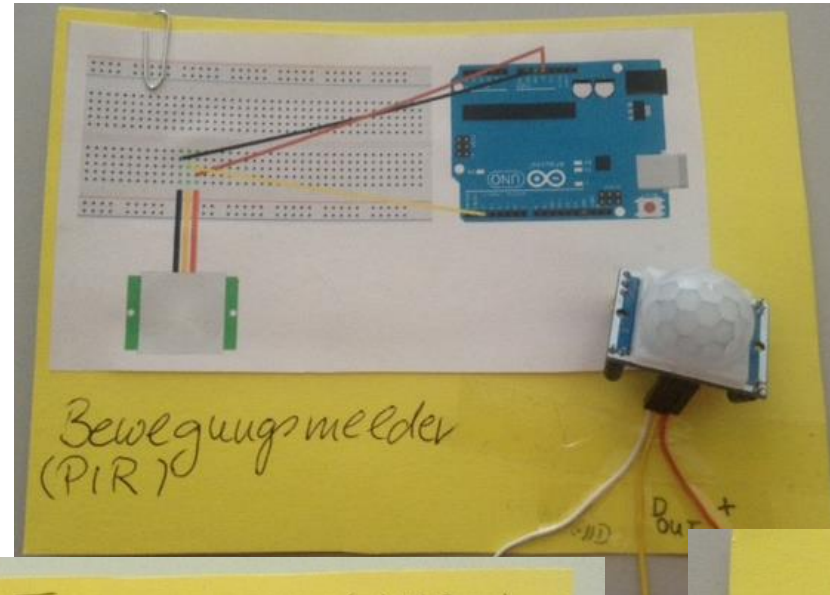 UNO
Bewegungsmelder
(PIR)
D +
OUT